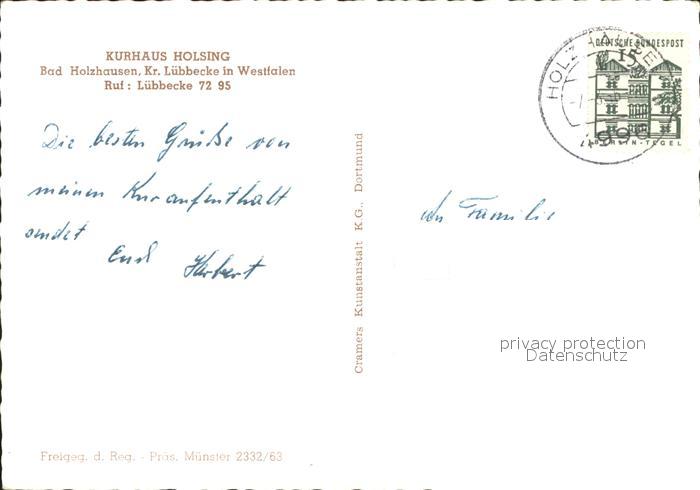 KURHAUS HOLSING
Bad Holzhausen, Kr. Lübbecke in Westfalen
Ruf: Lübbecke 72 95
Die besten Grüße von
meinen Kuraufenthalt
sendet
Euch
Herbert
Cramers Kunstanstalt K.G., Dortmund
DEUTSCHE BUNDESPOST
15
BERLIN-TEGEL
HOLZHAUSEN
An Familie
privacy protection
Datenschutz
Freigeg. d. Reg. - Präs. Münster 2332/63